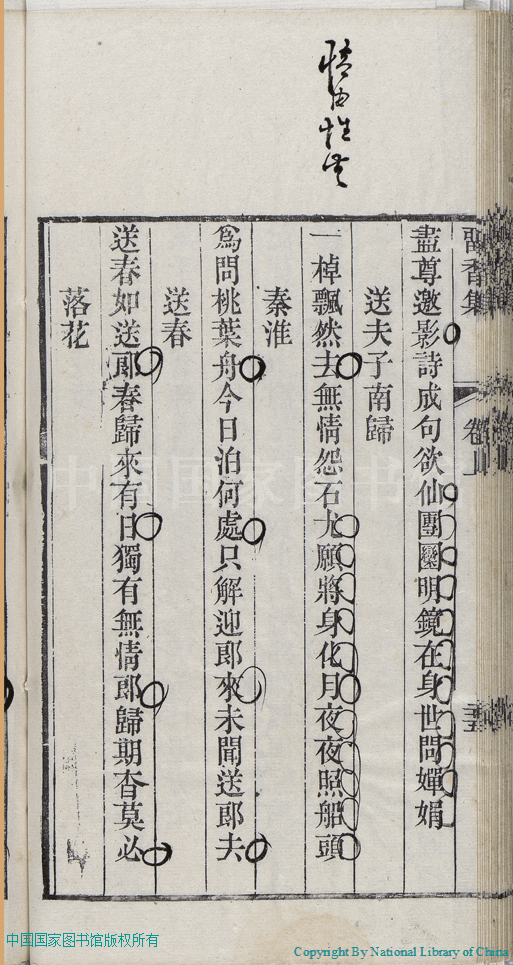 情由性生
盡尊邀影詩成句欲仙團圞明鏡在身世問嬋娟
送夫子南歸
一棹飄然去無情怨石尤願將身化月夜夜照船頭
秦淮
爲問桃葉舟今日泊何處只解迎郎來未聞送郎去
送春
送春如送郎春歸來有日獨有無情郎歸期杳莫必
落花
香集
卷上
中国国家图书馆
中国国家图书馆版权所有
Copyright By National Library of China